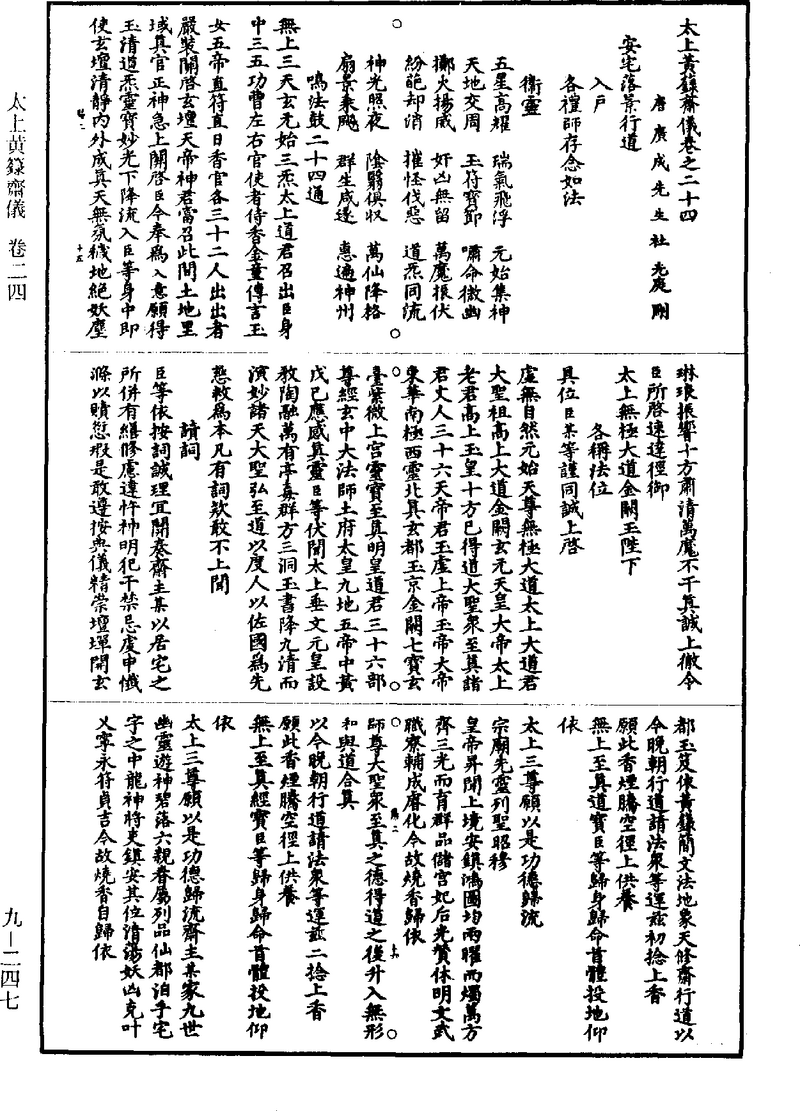 太上黃籙齋儀卷之二十四
唐廣成先生杜光庭刪
安宅落景行道
入戶
各禮師存念如法
衛靈
五星高耀 瑞氣飛浮 元始集神
天地交周 玉符寶節 嘯命徵幽
擲火揚威 奸凶無留 萬魔振伏
紛葩却消 摧怪伐惡 道炁同流
神光照夜 陰翳俱收 萬仙降格
扇景乘飈 群生咸遂 惠遍神州
鳴法鼓二十四通
無上三天玄元始三炁太上道君召出臣身
中三五功曹左右官使者侍香金童傳言玉
女五帝直符直日香官各三十二人出出者
嚴裝關啓玄壇天帝神君當召此間土地里
域真官正神急上關啓臣今奉爲入意願得
玉清道炁靈寶妙光下降流入臣等身中即
使玄壇清靜內外成真天無氛穢地絕妖塵
琳琅振響十方肅清萬魔不干真誠上徹令
臣所啓速達徑御
太上無極大道金闕玉陛下
各稱法位
具位臣某等謹同誠上啓
虛無自然元始天尊無極大道太上大道君
大聖祖高上大道金闕玄元天皇大帝太上
老君高上玉皇十方已得道大聖衆至真諸
君丈人三十六天帝君玉虛上帝玉帝大帝
東華南極西靈北真玄都玉京金闕七寶玄
臺紫微上宮靈寶至真明皇道君三十六部
尊經玄中大法師土府太皇九地五帝中黃
戊己應感真靈臣等伏聞太上垂文元皇設
教陶融萬有亭毒群方三洞玉書降九清而
演妙諸天大聖弘至道以度人以佐國爲先
愍救爲本凡有詞欵敢不上聞
請詞
臣等依按詞誠理宜關奏齋主某以居宅之
所併有繕修慮違忤神明犯干禁忌虔申懺
滌以贖愆瑕是敢遵按典儀精崇壇墠開玄
都玉笈依黃籙簡文法地象天修齋行道以
今晚朝行道請法衆等運茲初捻上香
願此香煙騰空徑上供養
無上至真道寶臣等歸身歸命首體投地仰
依
太上三尊願以是功德歸流
宗廟先靈列聖昭穆
皇帝昇聞上境安鎮鴻圖均兩曜而燭萬方
齊三光而育群品儲宮妃后光贊休明文武
職寮輔成睿化今故燒香歸依
師尊大聖衆至真之德得道之後升入無形
和與道合真
以今晚朝行道請法衆等運茲二捻上香
願此香煙騰空徑上供養
無上至真經寶臣等歸身歸命首體投地仰
依
太上三尊願以是功德歸流齋主某家九世
幽靈遊神碧落六親眷屬列品仙都洎乎宅
宇之中龍神將吏鎮安其位清蕩妖凶克叶
乂寧永符貞吉今故燒香自歸依
太上黃籙齋儀 卷二四
九—二四七